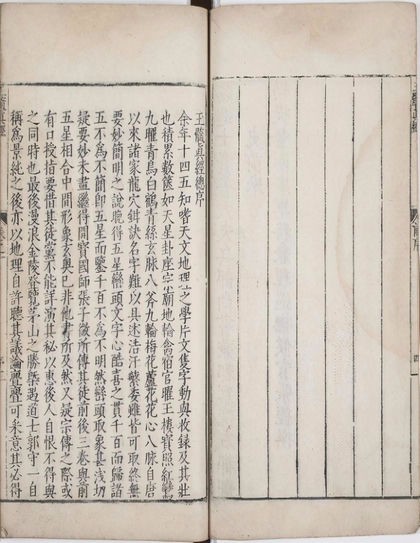 玉髓真經總序
余年十四五知嗜天文地理之學片文隻字動與收錄及其壯
也積累數篋如天星卦座宗廟地輪禽宿官曜王樓寶照紅鸞
九曜青烏白鶴青絲玄脉八斧九輪梅花蘆花花心八脉自唐
以來諸家龍穴鉗訣名字難以具述浩汗繁委雖皆可取終無
要妙簡明之說脆得五星巒頭文字心酷喜之貫千百而歸諸
五不爲不簡卽五星而鑒千百不爲不明然巒頭取象甚淺切
提要妙未盡繼得開寶國師張子微所傳其徒前後三卷與前
五星相合中間形象玄奧巳非他書所及然又疑宗傳之際或
有口授指要惜其徒黨不能詳演其秘以惠後人自恨不得與
之同時也最後漫浪金陵登覽茅山之勝槩遇道士郭守一自
稱爲景純之後亦以地理自許聽其議論亹亹可采意其必得